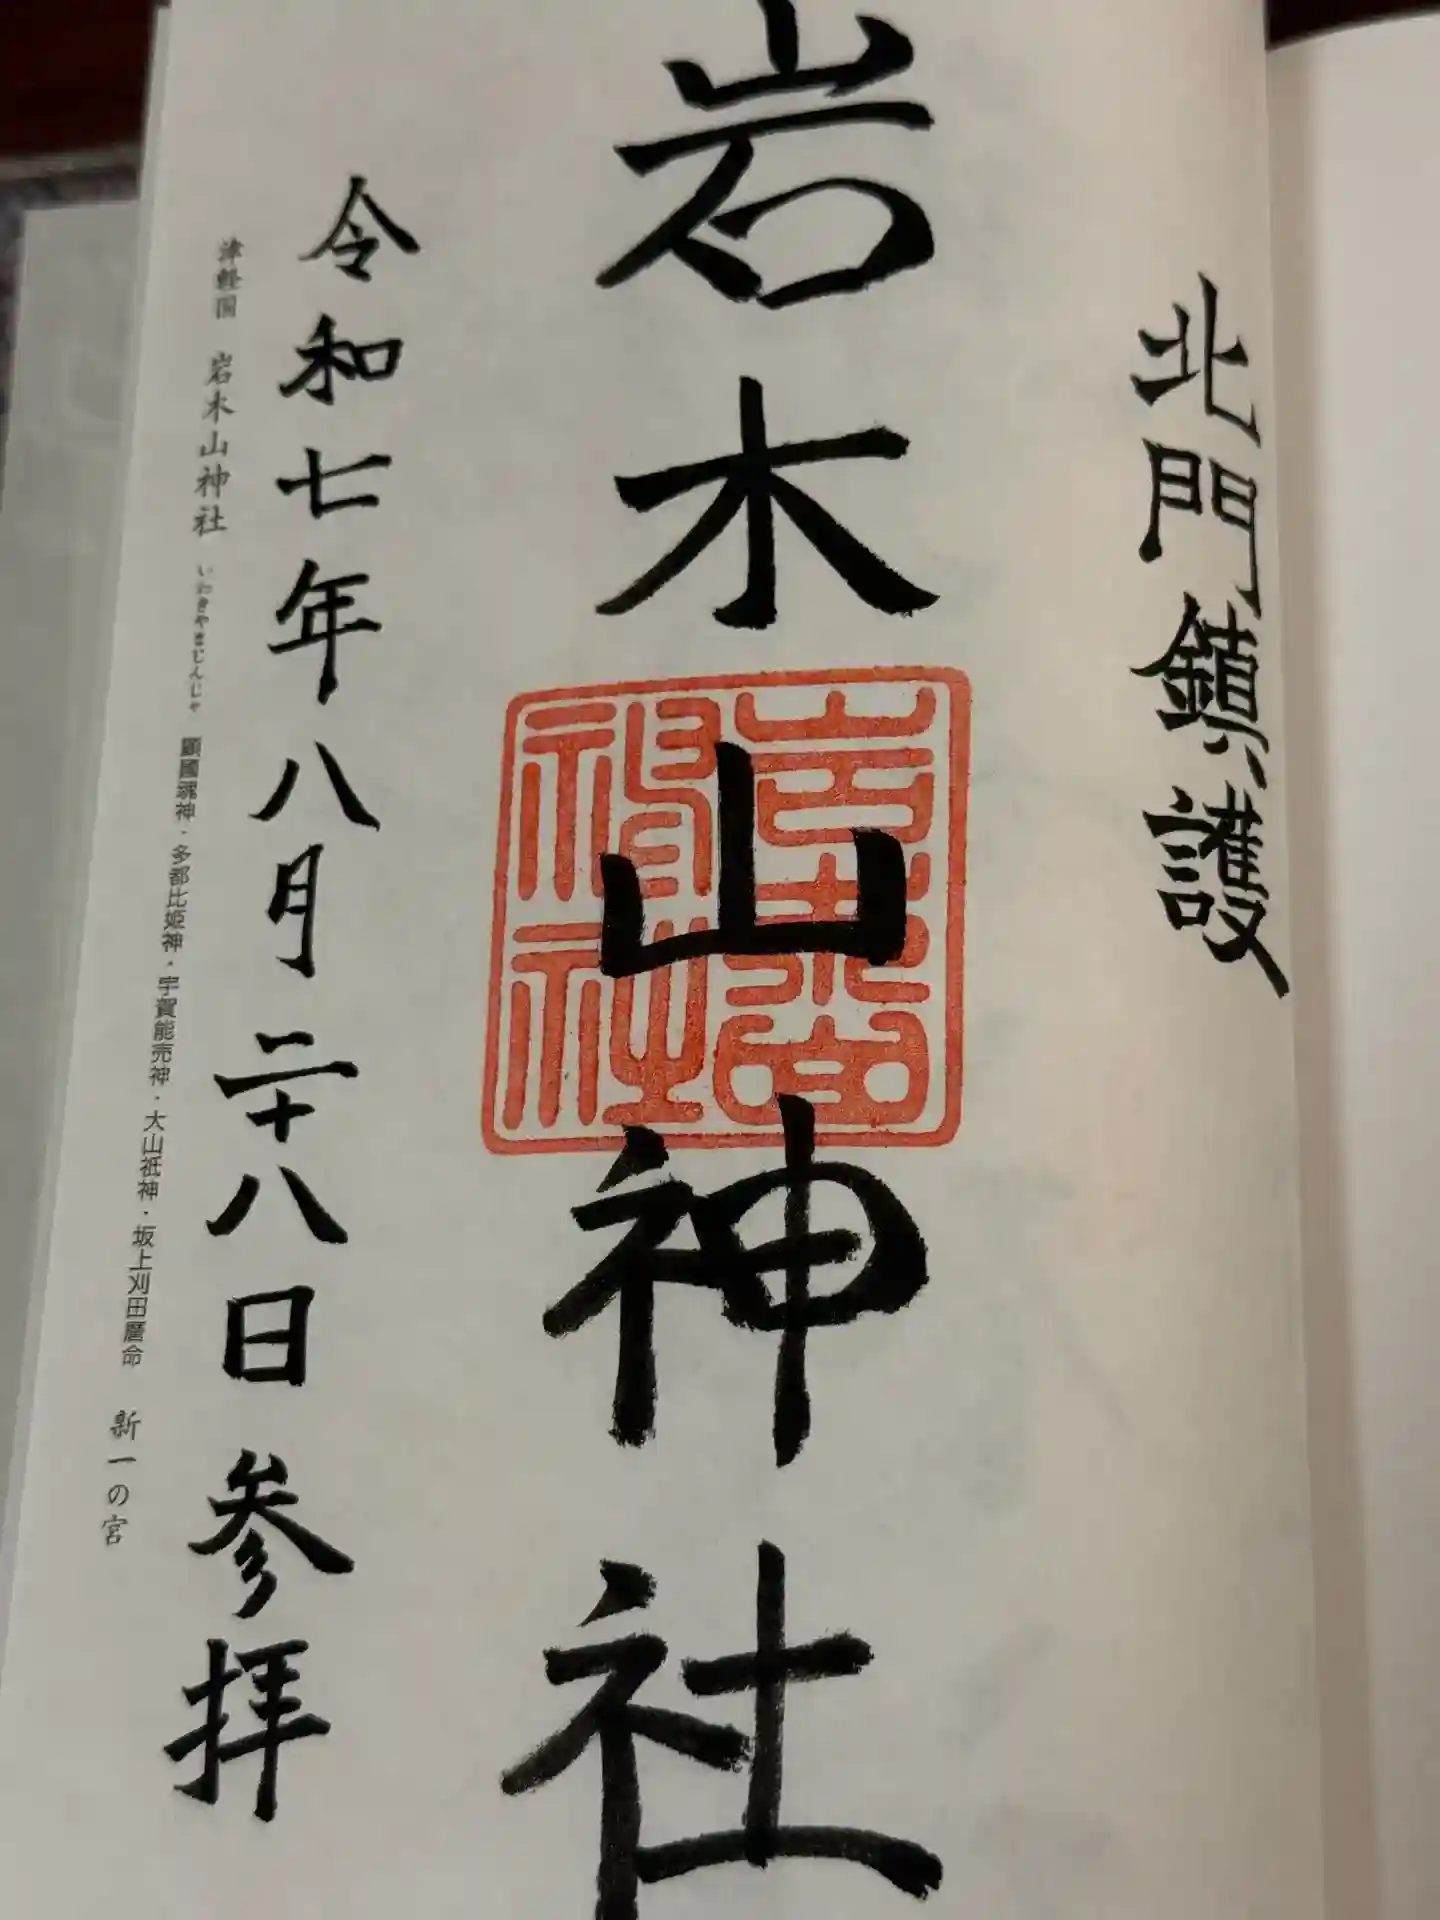 北門鎮護
岩木山神社
令和七年八月二十八日参拝
津軽国 岩木山神社 いわきやまじんじゃ 顕國魂神・多都比姫神・宇賀能売神・大山祇神・坂上刈田麿命 新一の宮